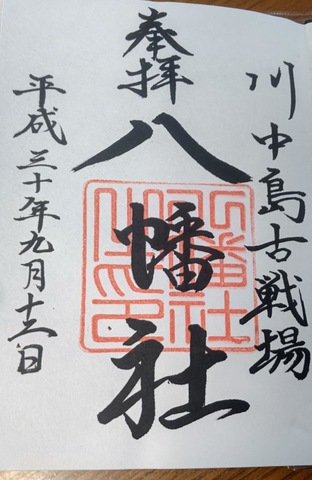 川中島古戦場
奉拝
八幡社
平成三十年九月十六日